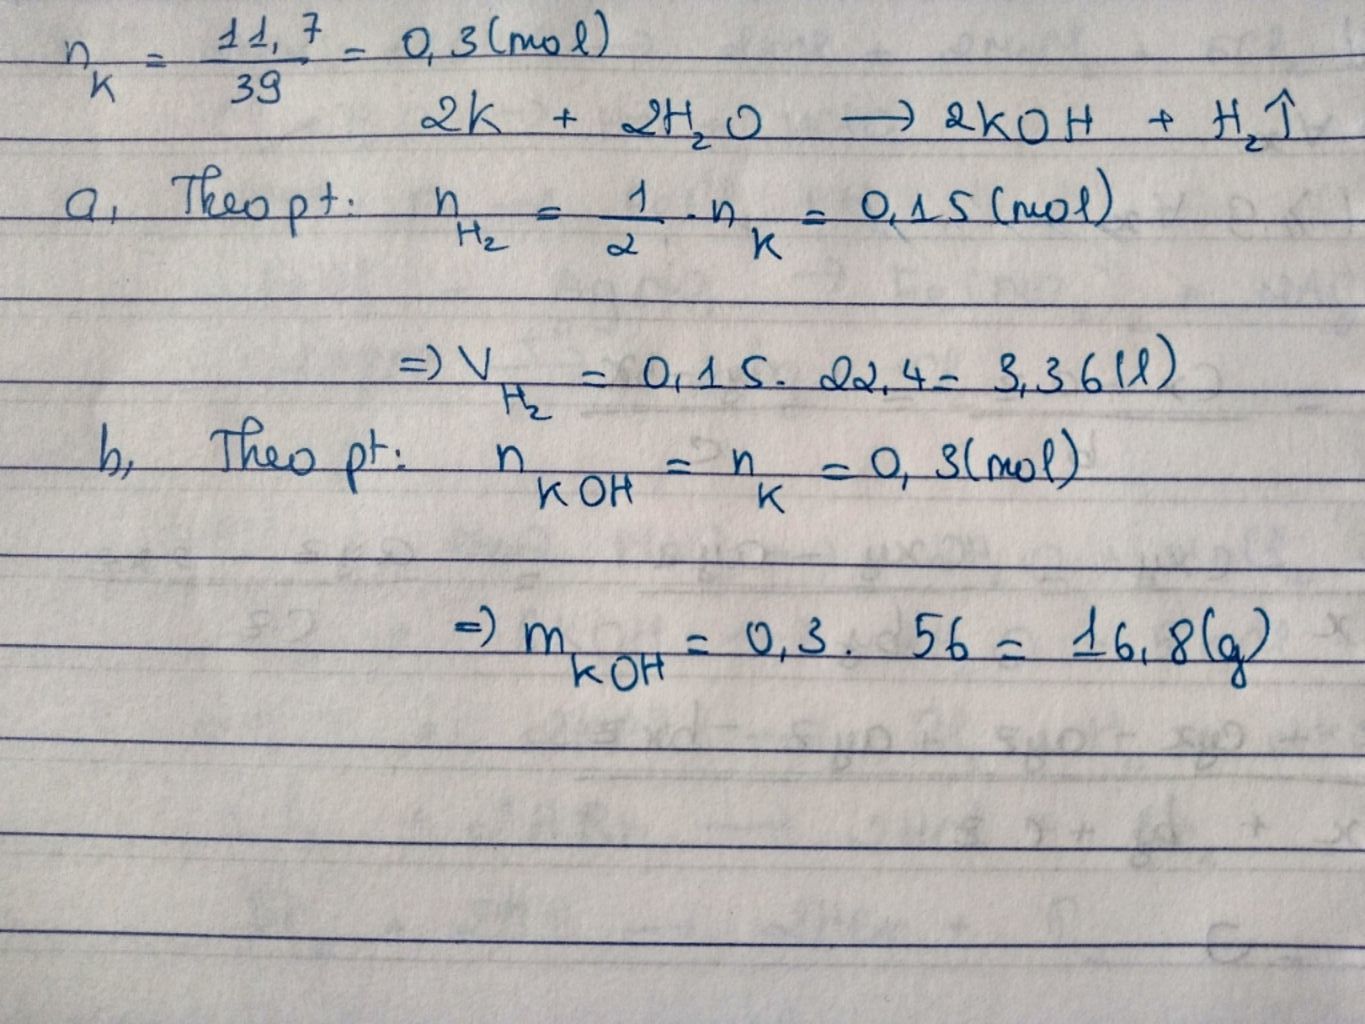 n_K = 11,7/39 = 0,3(mol)
2K + 2H₂O → 2KOH + H₂↑
a, Theo pt: n_H₂ = 1/2 . n_K = 0,15(mol)
=) V_H₂ = 0,15. 22,4 = 3,36(l)
b, Theo pt: n_KOH = n_K = 0,3(mol)
=) m_KOH = 0,3. 56 = 16,8(g)